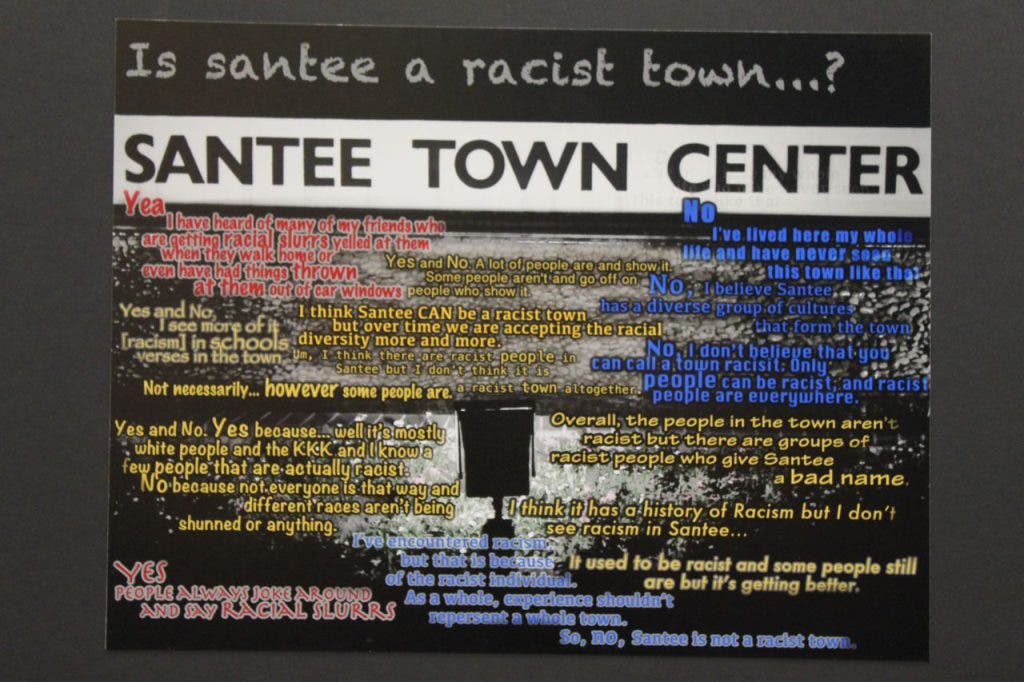 Is santee a racist town...?
SANTEE TOWN CENTER
Yea
I have heard of many of my friends who
are getting racial slurrs yelled at them
when they walk home or
even have had things thrown
at them out of car windows
No
I've lived here my whole
life and have never seen
this town like that
Yes and No. A lot of people are and show it.
Some people aren't and go off on
people who show it.
No, I believe Santee
has a diverse group of cultures
that form the town
Yes and No,
I see more of it
[racism] in schools
verses in the town.
I think Santee CAN be a racist town
but over time we are accepting the racial
diversity more and more.
Um, I think there are racist people in
Santee but I don't think it is
a racist town altogether.
No, I don't believe that you
can call a town racisit: Only
people can be racist, and racist
people are everywhere.
Not necessarily... however some people are.
Yes and No. Yes because... well it's mostly
white people and the KKK and I know a
few people that are actually racist.
No because not everyone is that way and
different races aren't being
shunned or anything.
Overall, the people in the town aren't
racist but there are groups of
racist people who give Santee
a bad name.
I think it has a history of Racism but I don't
see racism in Santee...
I've encountered racism
but that is because
of the racist individual.
As a whole, experience shouldn't
repersent a whole town.
So, no, Santee is not a racist town.
It used to be racist and some people still
are but it's getting better.
YES
PEOPLE ALWAYS JOKE AROUND
AND SAY RACIAL SLURRS